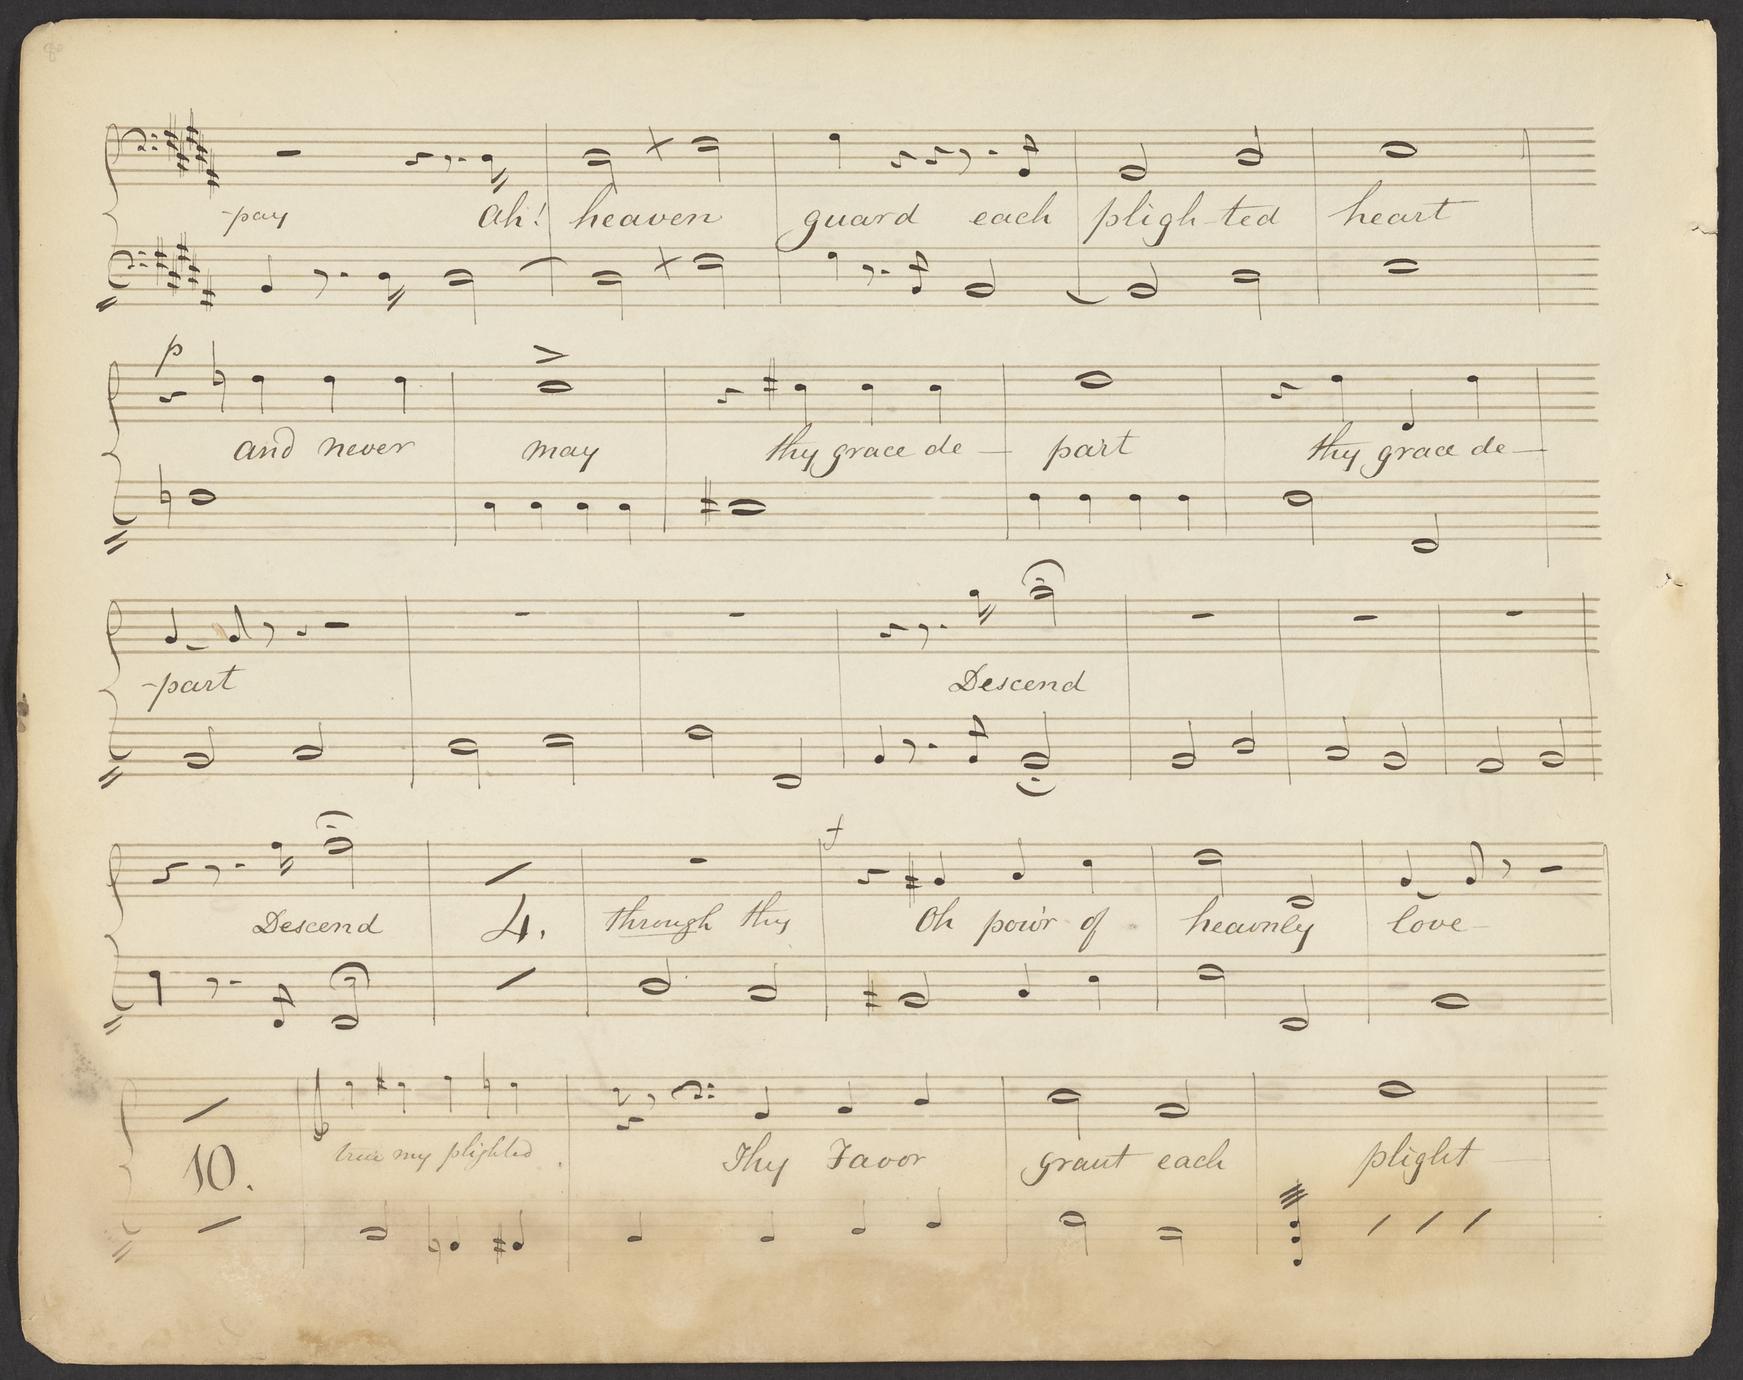 -pay Ah! heaven guard each pligh-ted heart
p
and never may thy grace de- part thy grace de-
-part Descend
f
Descend 4. through thy Oh pow'r of heavnly love-
10. true my plighted Thy Favor grant each plight-